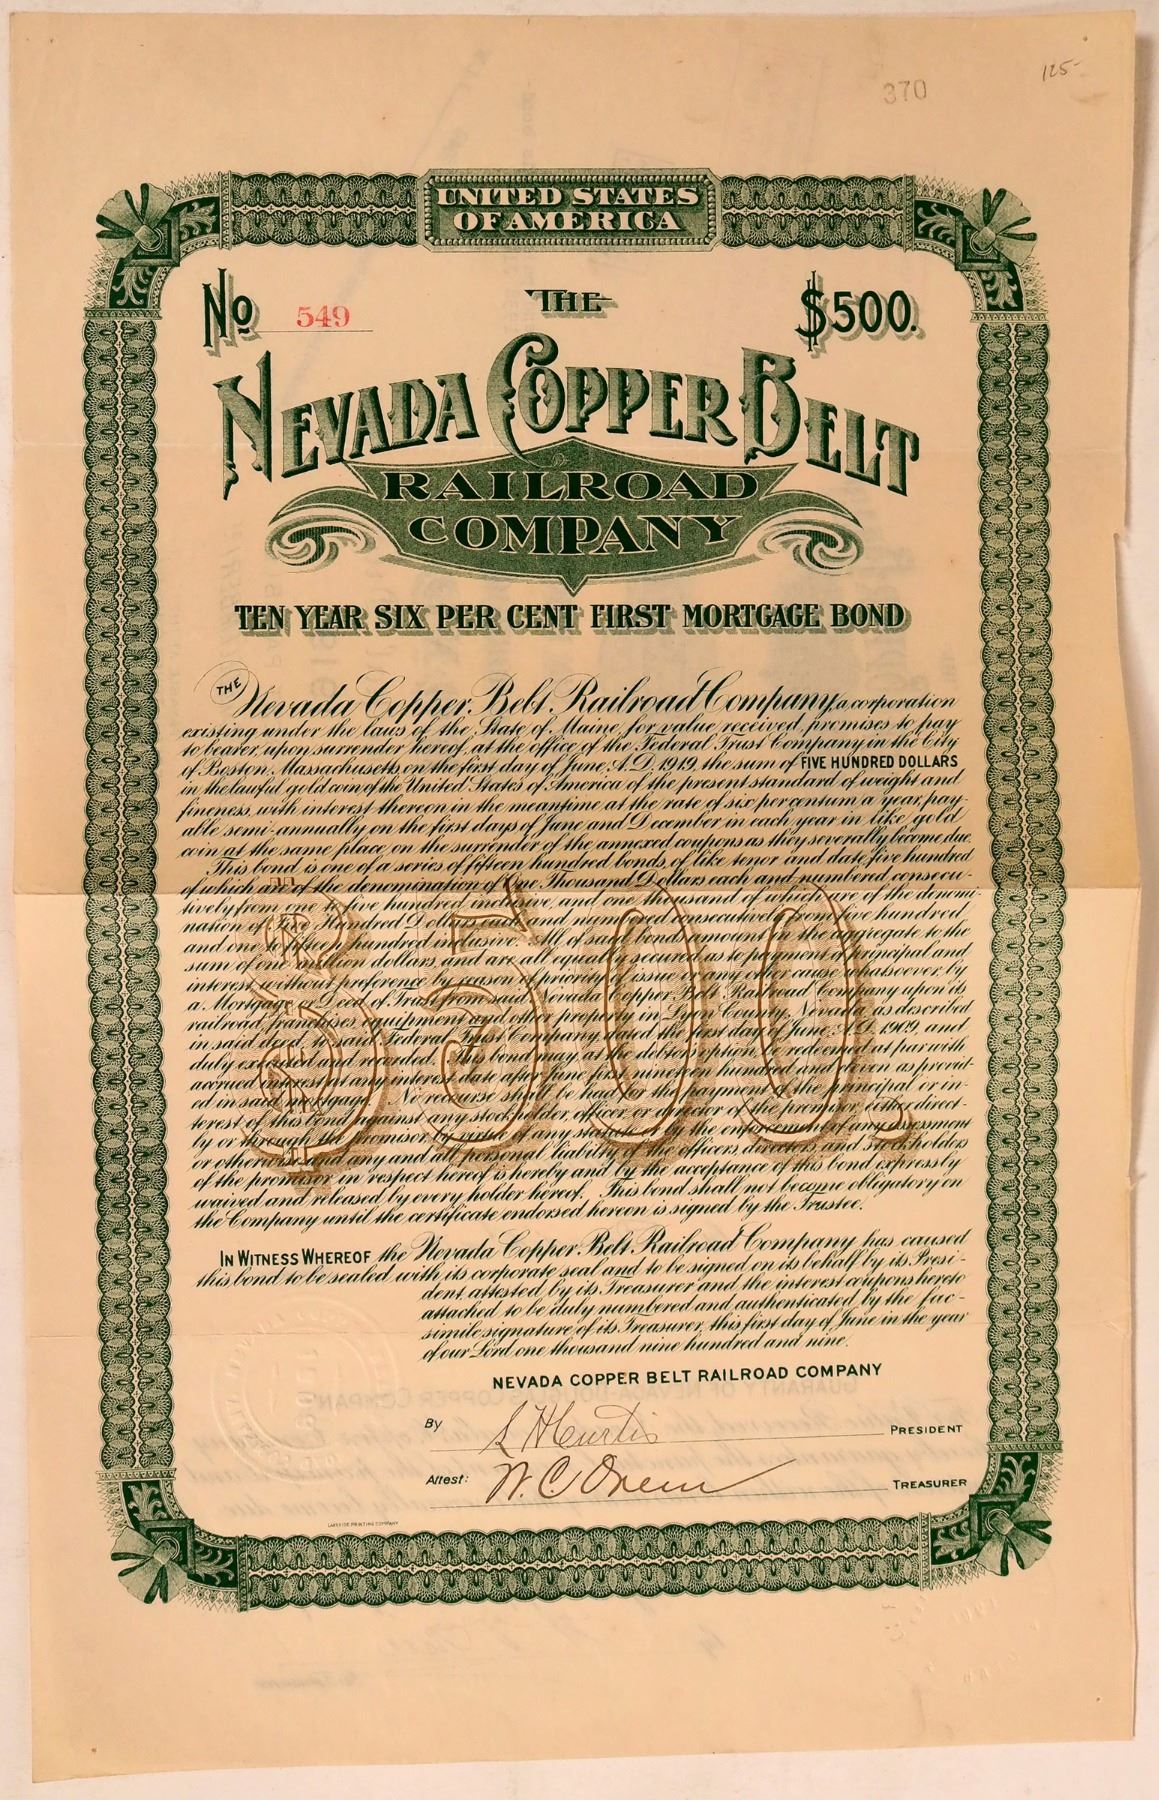 125-
370
UNITED STATES
OF AMERICA
No 549
THE
$500.
NEVADA COPPER BELT
RAILROAD
COMPANY
TEN YEAR SIX PER CENT FIRST MORTGAGE BOND
THE Nevada Copper Belt Railroad Company a corporation
existing under the laws of the State of Maine, for value received, promises to pay
to bearer, upon surrender hereof, at the office of the Federal Trust Company in the City
of Boston, Massachusetts, on the first day of June, A.D. 1919, the sum of FIVE HUNDRED DOLLARS
in the lawful gold coin of the United States of America of the present standard of weight and
fineness, with interest thereon in the meantime at the rate of six per centum a year, pay-
able semi-annually on the first days of June and December in each year in like gold
coin at the same place, on the surrender of the annexed coupons as they severally become due.
This bond is one of a series of fifteen hundred bonds, of like tenor and date, five hundred
of which are of the denomination of One Thousand Dollars each and numbered consecu-
tively from one to five hundred inclusive, and one thousand of which are of the denomi-
nation of Five Hundred Dollars each and numbered consecutively from five hundred
and one to fifteen hundred inclusive. All of said bonds amount in the aggregate to the
sum of one million dollars, and are all equally secured as to payment of principal and
interest, without preference by reason of priority of issue or any other cause whatsoever, by
a Mortgage or Deed of Trust from said Nevada Copper Belt Railroad Company upon its
railroad, franchises, equipment and other property in Lyon County, Nevada, as described
in said deed, to said Federal Trust Company, dated the first day of June, A.D. 1909, and
duly executed and recorded. This bond may, at the debtor's option, be redeemed at par with
accrued interest at any interest date after June first nineteen hundred and eleven as provid-
ed in said mortgage. No recourse shall be had for the payment of the principal or in-
terest of this bond against any stockholder, officer, or director of the promisor, either direct-
ly or through the promisor, by virtue of any statute or by the enforcement of any assessment
or otherwise, and any and all personal liability of the officers, directors, and stockholders
of the promisor in respect hereof is hereby and by the acceptance of this bond expressly
waived and released by every holder hereof. This bond shall not become obligatory on
the Company until the certificate endorsed hereon is signed by the Trustee.
$500.
IN WITNESS WHEREOF the Nevada Copper Belt Railroad Company has caused
this bond to be sealed with its corporate seal and to be signed on its behalf by its Presi-
dent, attested by its Treasurer and the interest coupons hereto
attached to be duly numbered and authenticated by the fac-
simile signature of its Treasurer, this first day of June in the year
of our Lord one thousand nine hundred and nine.
NEVADA COPPER BELT RAILROAD COMPANY
By S H Curtis PRESIDENT
Attest: W. C. Orem TREASURER
LAKESIDE PRINTING COMPANY